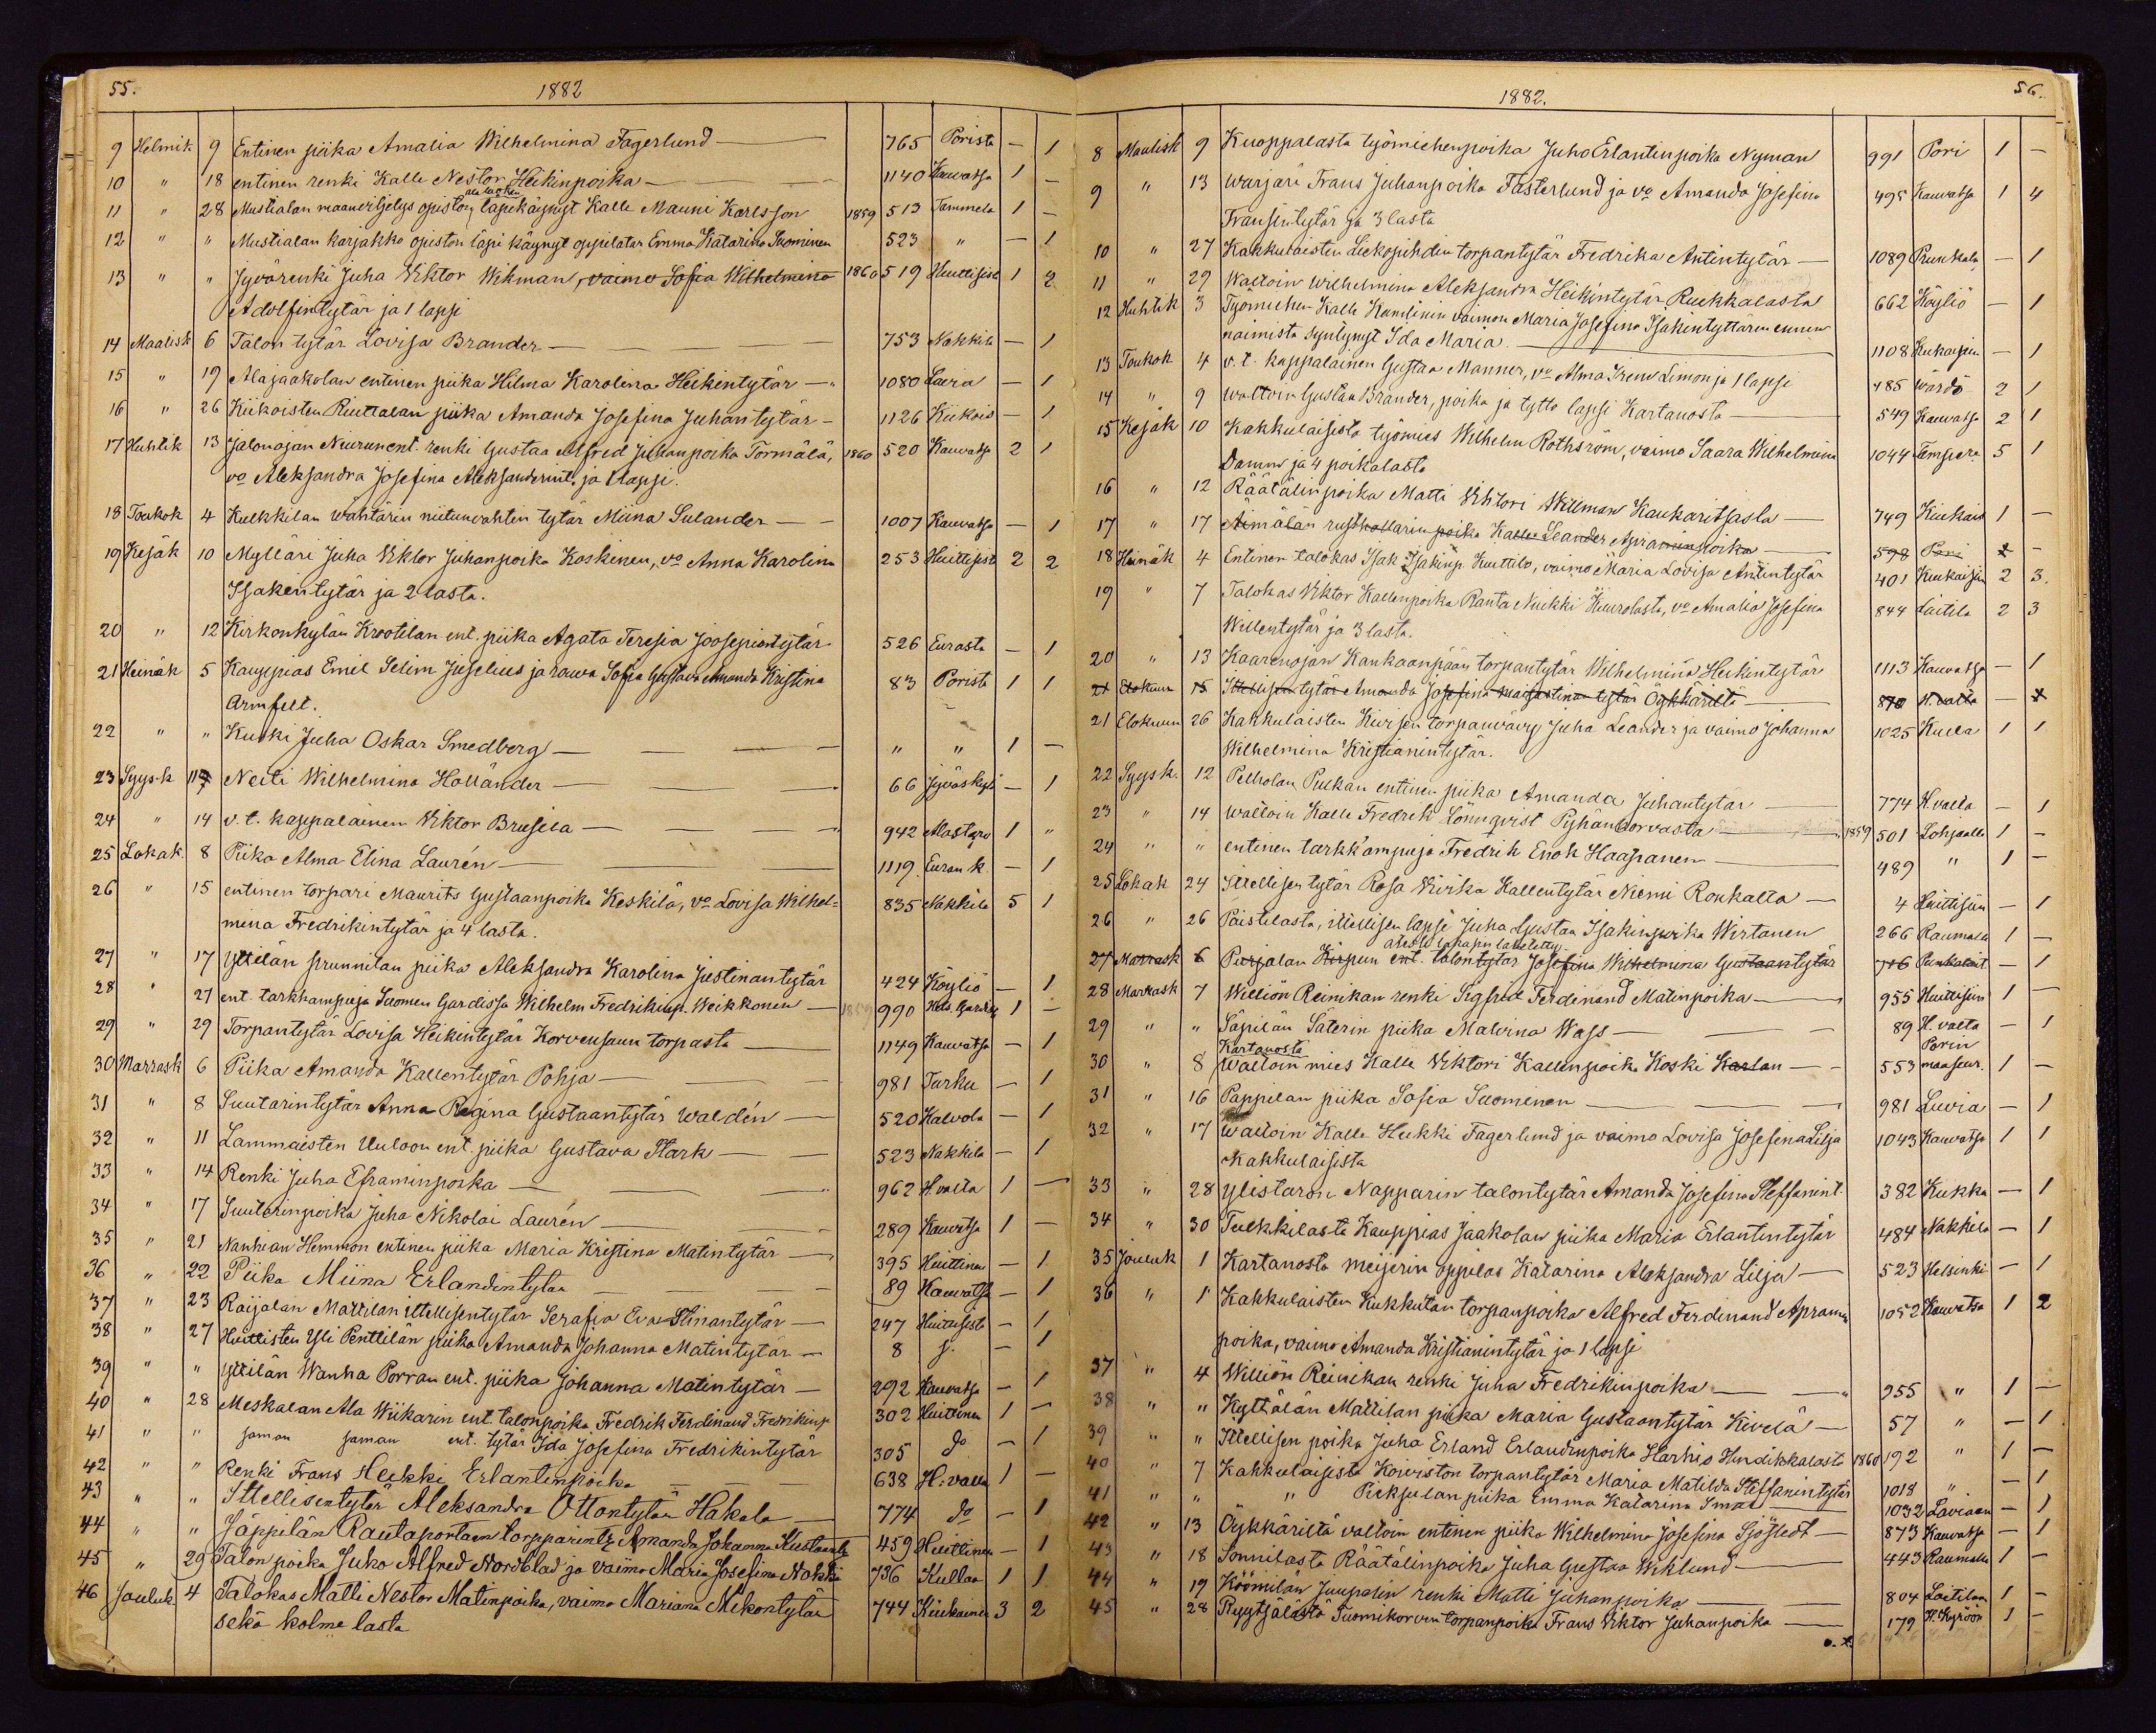 55.
1882
9 Helmik 9 Entinen piika Amalia Wilhelmina Fagerlund — 765 Porista — 1
10 " 18 entinen renki Kalle Nestor Heikinpoika — 1140 Kauvatsa 1 —
11 " 28 Mustialan maanviljelys opiston läpikäynyt Kalle Mauni Karlsson 1859 513 Tammela 1 —
12 " " Mustialan karjakko opiston läpi käynyt oppilatar Emma Katarina Suominen 523 " — 1
13 " " Jyvärenki Juha Viktor Wikman, vaimo Sofia Wilhelmina 1860 519 Huittisist 1 2
Adolfintytär ja 1 lapsi
14 Maalisk 6 Talon tytär Lovisa Brander — 753 Nakkila — 1
15 " 19 Alajaakolan entinen piika Hilma Karolina Heikintytär — 1080 Luvia — 1
16 " 26 Kiikoisten Riuttalan piika Amanda Josefina Juhantytär — 1126 Kiikois — 1
17 Huhtik 13 Jalonojan Niurun ent. renki Gustaa Alfred Juhanpoika Tormälä, 1860 520 Kauvatsa 2 1
vo Aleksandra Josefina Aleksanderint. ja 1 lapsi.
18 Toukok 4 Kulkkilan wahtärin niitunvahtin tytär Miina Sulander — 1007 Kauvatsa — 1
19 Kesäk 10 Mylläri Juha Viktor Juhanpoika Koskinen, vo Anna Karolina 253 Huittisist 2 2
Isakintytär ja 2 lasta.
20 " 12 Kirkonkylän Krootilan ent. piika Agata Teresia Joosepintytär 526 Eurasta — 1
21 Heinäk 5 Kauppias Emil Selim Juselius ja rouva Sofia Gustava Amanda Kristina 83 Porista 1 1
Armfelt.
22 " " Kuski Juha Oskar Smedberg — " " 1 —
23 Syysk 11 Neiti Wilhelmina Holländer — 66 Jyväskyl — 1
24 " 14 v. t. kappalainen Viktor Brusila — 942 Alastaro 1 "
25 Lokak. 8 Piika Alma Elina Laurén — 1119. Euran k. — 1
26 " 15 entinen torpari Maurits Gustaanpoika Keskilä, vo Lovisa Wilhel= 835 Nakkila 5 1
mina Fredrikintytär ja 4 lasta.
27 " 17 Yttilän Prunnilan piika Aleksandra Karolina Justinantytär 424 Köyliö — 1
28 " 27 ent. tarkkampuja Suomen Gardissa Wilhelm Fredrikinp. Weikkonen — 990 Hels. Gardista 1 —
29 " 29 Torpantytär Lovisa Heikintytär Korvensuun torpasta — 1149 Kauvatsa — 1
30 Marrask 6 Piika Amanda Kallentytär Pohja — 981 Turku — 1
31 " 8 Suutarintytär Anna Regina Gustaantytär Waldén — 520 Kalvola — 1
32 " 11 Lammaisten Uuloon ent. piika Gustava Stark — 523 Nakkila — 1
33 " 14 Renki Juha Eframinpoika — 962 H.valta 1 —
34 " 17 Suutarinpoika Juha Nikolai Laurén — 289 Kauvatsa 1 —
35 " 21 Nanhian Hemmon entinen piika Maria Kristina Matintytär — 395 Huittinen — 1
36 " 22 Piika Miina Erlandintytär 89 Kauvatsa — 1
37 " 23 Raijalan Mattilan ittellisentytär Serafia Eva Stinantytär — 247 Huittisist — 1
38 " 27 Huittisten Yli Penttilän piika Amanda Johanna Matintytär — 8 s. — 1
39 " " Yttilän Wanha Porran ent. piika Johanna Matintytär — 292 Kauvatsa — 1
40 " 28 Meskalan Ala Wiikarin ent. talonpoika Fredrik Ferdinand Fredrikinp 302 Huittinen 1 —
41 " " saman saman ent. tytär Ida Josefina Fredrikintytär 305 do — 1
42 " " Renki Frans Heikki Erlantinpoika 638 H.valta 1 —
43 " " Ittellisentytär Aleksandra Ottontytär Hakala — 774 do — 1
44 " " Säppilän Rautaportaan torpparintr Amanda Johanna Kustaantr 459 Huittinen — 1
45 " 29 Talon poika Juho Alfred Nordblad ja vaimo Maria Josefina Nokki 736 Kullaa 1 1
46 Jouluk 4 Talokas Matti Nestor Matinpoika, vaimo Mariana Mikontytär 744 Kiukainen 3 2
sekä kolme lasta
1882.
56.
8 Maalisk 9 Kuoppalasta työmiehenpoika Juho Erlantinpoika Nyman 991 Pori 1 —
9 " 13 Warjäri Frans Juhanpoika Fasterlund ja vo Amanda Josefina 495 Kauvatsa 1 4
Fransintytär ja 3 lasta
10 " 27 Kakkulaisten Liekopihdin torpantytär Fredrika Antintytär — 1089 Punkala — 1
11 " 29 Waltoin Wilhelmina Aleksandra Heikintytär Ruckkalasta 662 Köyliö — 1
12 Huhtik 3 Työmiehen Kalle Hamlinin vaimon Maria Josefina Isakintyttären ennen
naimista syntynyt Ida Maria. — 1108 Kiukaisiin — 1
13 Toukok 4 v. t. kappalainen Gustaa Manner, vo Alma Irene Limon ja 1 lapsi 485 Wårdö 2 1
14 " 9 waltoin Gustaa Brander, poika ja tyttö lapsi Kartanosta — 549 Kauvatsa 2 1
15 Kesäk 10 Kakkulaisista työmies Wilhelm Rothström, vaimo Saara Wilhelmina 1044 Tempere 5 1
Damm ja 4 poikalasta
16 " 12 Räätälinpoika Matti Vihtori Willman Kaukaritsasta — 749 Kiukais 1 —
17 " 17 Äimälän rusthollarin poika Kalle Leander Apraminpoika — 598 Pori 1 —
18 Heinäk 4 Entinen talokas Isak Isakinp. Kuittilo, vaimo Maria Lovisa Antintytär 401 Kiukaisiin 2 3.
19 " 7 Talokas Viktor Kallenpoika Ranta Nuikki Kuurolasta, vo Amalia Josefina 844 Laitila 2 3
Willentytär ja 3 lasta.
20 " 13 Kaarenojan Kankaanpään torpantytär Wilhelmina Heikintytär 1113 Kauvatsa — 1
21 Elokuun 15 Ittellisen tytär Amanda Josefina Maijastinan tytär Öykkäriltä — 870 H.valta — 1
21 Elokuun 26 Kakkulaisten Kivisen torpanvävy Juha Leander ja vaimo Johanna 1025 Kulla 1 1
Wilhelmina Kristianintytär.
22 Syysk. 12 Pelholan Pulkan entinen piika Amanda Juhantytär — 774 H.valta — 1
23 " 14 waltoin Kalle Fredrik Lönnqvist Pyhänkorvasta — 1859 501 Lohjaalle 1 —
24 " " entinen tarkk'ampuja Fredrik Enok Haapanen — 489 " 1 —
25 Lokak 24 Ittellisen tytär Rosa Vivika Kallentytär Niemi Ronkalta — 4 Huittisiin — 1
26 " 26 Paistilasta, ittellisen lapsi Juha Gustaa Isakinpoika Wirtanen 266 Raumalle 1 —
27 Marrask 6 Purjalan Kirpun ent. talontytär Josefina Wilhelmina Gustaantytär 716 Punkalait — 1
28 Marrask 7 Williön Reinikan renki Sigfred Ferdinand Matinpoika — 955 Huittisiin 1 —
29 " " Säpilän Säterin piika Malvina Wass — 89 H. valta — 1
30 " 8 Kartanosta Waltoin mies Kalle Viktori Kallenpoika Koski Kartan — 553 Porin maaseur. 1 —
31 " 16 Pappilan piika Sofia Suominen — 981 Luvia — 1
32 " 17 Waltoin Kalle Heikki Fagerlund ja vaimo Lovisa Josefina Lilja 1043 Kauvatsa 1 1
Kakkulaisista
33 " 28 Ylistaron Napparin talontytär Amanda Josefina Steffanint. 382 Kukka — 1
34 " 30 Tulkkilasta Kauppias Jaakolan piika Maria Erlantintytär 484 Nakkila — 1
35 Jouluk 1 Kartanosta meijerin oppilas Katarina Aleksandra Lilja — 523 Helsinki — 1
36 " 1 Kakkulaisten Kukkulan torpanpoika Alfred Ferdinand Apramin 1052 Kauvatsa 1 2
poika, vaimo Amanda Kristianintytär ja 1 lapsi
37 " 4 Williön Reinikan renki Juha Fredrikinpoika — 955 " 1 —
38 " " Kyttälän Mattilan piika Maria Gustaantytär Kivelä — 57 " — 1
39 " " Ittellisen poika Juha Erland Erlandinpoika Harhio Hindikkalasta 1860 192 " 1 —
40 " 7 Kakkulaisista Koiviston torpantytär Maria Matilda Steffanintytär 1018 " — 1
41 " " " Pieksulan piika Emma Katarina Smal — 1032 Laviaan — 1
42 " 13 Öykkäriltä valtoin entinen piika Wilhelmina Josefina Sjöstedt — 873 Kauvatsa — 1
43 " 18 Sonnilasta Räätälinpoika Juha Gustaa Wiklund — 443 Raumalle 1 —
44 " 19 Köömilän Juupalin renki Matti Juhanpoika — 804 Laitilan 1 —
45 " 28 Pyytjälästä Tuomikorven torpanpoika Frans Viktor Juhanpoika — 179 H.Kyröön 1 —